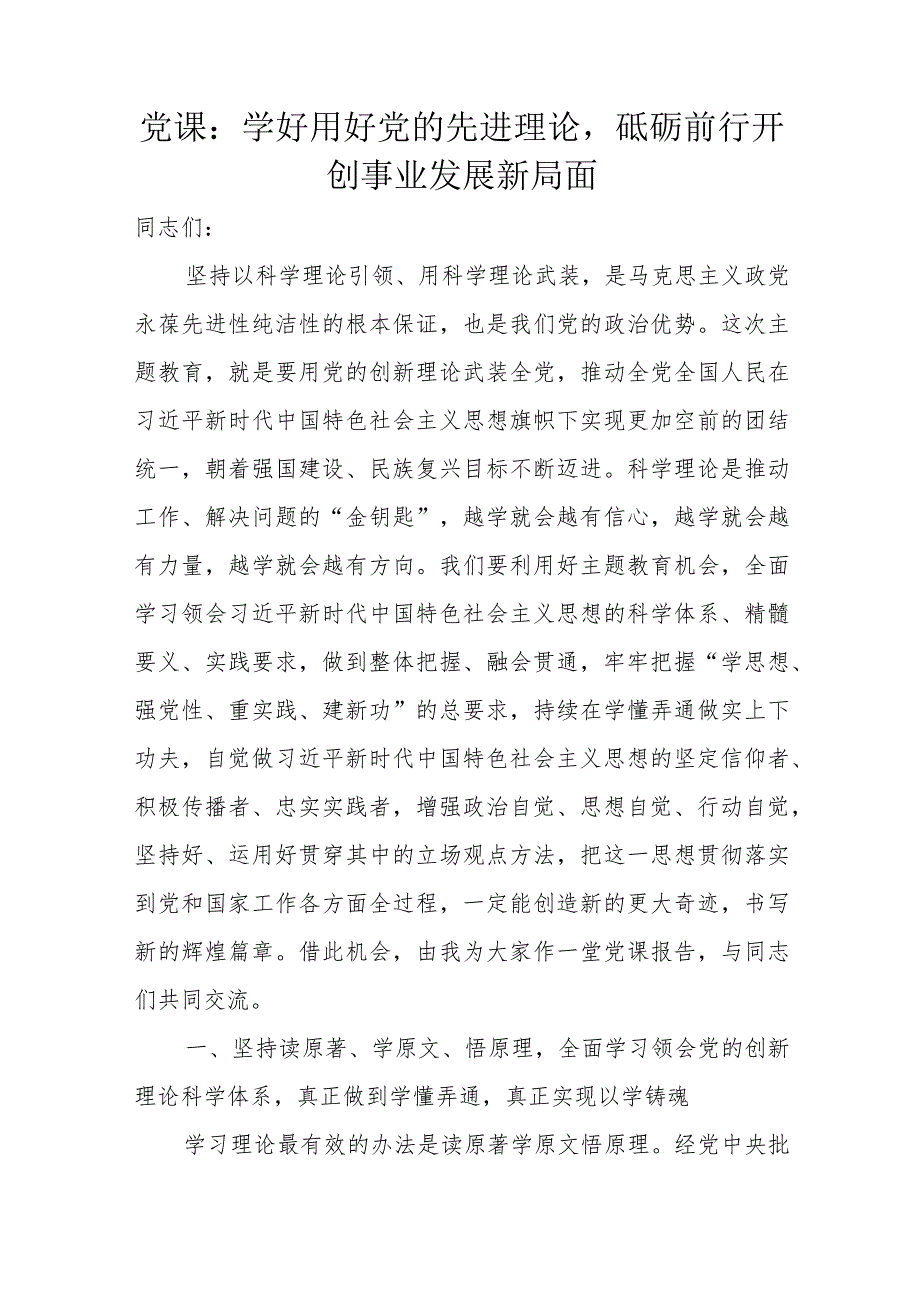 党课：学好用好党的先进理论，砥砺前行开
创事业发展新局面
同志们：
坚持以科学理论引领、用科学理论武装，是马克思主义政党
永葆先进性纯洁性的根本保证，也是我们党的政治优势。这次主
题教育，就是要用党的创新理论武装全党，推动全党全国人民在
习近平新时代中国特色社会主义思想旗帜下实现更加空前的团结
统一，朝着强国建设、民族复兴目标不断迈进。科学理论是推动
工作、解决问题的“金钥匙”，越学就会越有信心，越学就会越
有力量，越学就会越有方向。我们要利用好主题教育机会，全面
学习领会习近平新时代中国特色社会主义思想的科学体系、精髓
要义、实践要求，做到整体把握、融会贯通，牢牢把握“学思想、
强党性、重实践、建新功”的总要求，持续在学懂弄通做实上下
功夫，自觉做习近平新时代中国特色社会主义思想的坚定信仰者、
积极传播者、忠实实践者，增强政治自觉、思想自觉、行动自觉，
坚持好、运用好贯穿其中的立场观点方法，把这一思想贯彻落实
到党和国家工作各方面全过程，一定能创造新的更大奇迹，书写
新的辉煌篇章。借此机会，由我为大家作一堂党课报告，与同志
们共同交流。
一、坚持读原著、学原文、悟原理，全面学习领会党的创新
理论科学体系，真正做到学懂弄通，真正实现以学铸魂
学习理论最有效的办法是读原著学原文悟原理。经党中央批